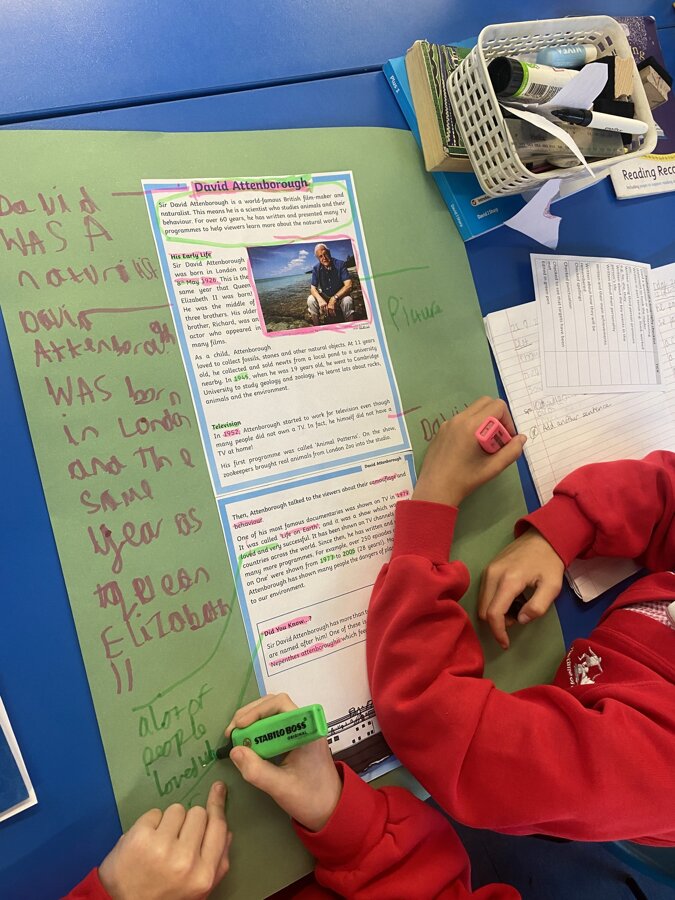 David
WAS A
naturilist
David
Attenborough
WAS born
in London
and the
same
year as
queen
Elizabeth
II
a lot of
people
loved
Picture
David
David Attenborough
Sir David Attenborough is a world-famous British film-maker and
naturalist. This means he is a scientist who studies animals and their
behaviour. For over 60 years, he has written and presented many TV
programmes to help viewers learn more about the natural world.
His Early Life
Sir David Attenborough
was born in London on
8th May 1926. This is the
same year that Queen
Elizabeth II was born!
He was the middle of
three brothers. His older
brother, Richard, was an
actor who appeared in
many films.
As a child, Attenborough
loved to collect fossils, stones and other natural objects. At 11 years
old, he collected and sold newts from a local pond to a university
nearby. In 1945, when he was 19 years old, he went to Cambridge
University to study geology and zoology. He learnt lots about rocks,
animals and the environment.
Television
In 1952, Attenborough started to work for television even though
many people did not own a TV. In fact, he himself did not have a
TV at home!
His first programme was called 'Animal Patterns'. On the show,
zookeepers brought real animals from London Zoo into the studio.
David Attenborough
Then, Attenborough talked to the viewers about their camouflage and
behaviour.
One of his most famous documentaries was shown on TV in 1979.
It was called 'Life on Earth', and it was a show which wa
loved and very successful. It has been shown on TV channels
countries across the world. Since then, he has written and
many more programmes. For example, over 250 episodes
on One' were shown from 1977 to 2005 (28 years!).
Attenborough has shown many people the dangers of
to our environment.
Did You Know...?
Sir David Attenborough has more than
are named after him! One of these is
Nepenthes attenboroughii which
STABILO BOSS
ORIGINAL
NIVEA
Reading Reco
Add another sentence